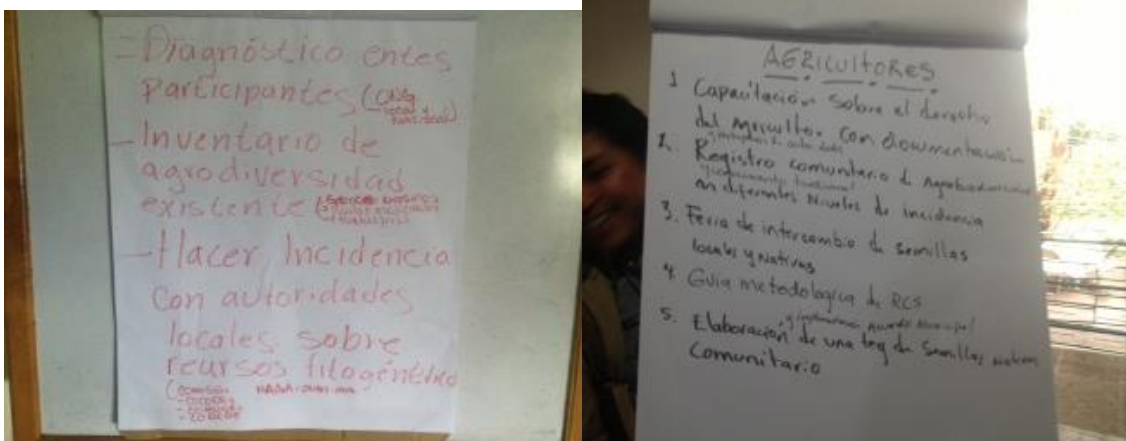 - Diagnóstico entes
participantes (ONG
local y
nacional)
- Inventario de
agrodiversidad
existente
- Hacer Incidencia
con autoridades
locales sobre
recursos fitogenético
- CODEDE
AGRICULTORES
1 Capacitación sobre el derecho
del agricultor con documentación
2. Registro comunitario de
en diferentes niveles de incidencia
3. Feria de intercambio de semillas
locales y nativas
4 Guia metodologica de RCS
5. Elaboración de una ley de semillas nativas
comunitario